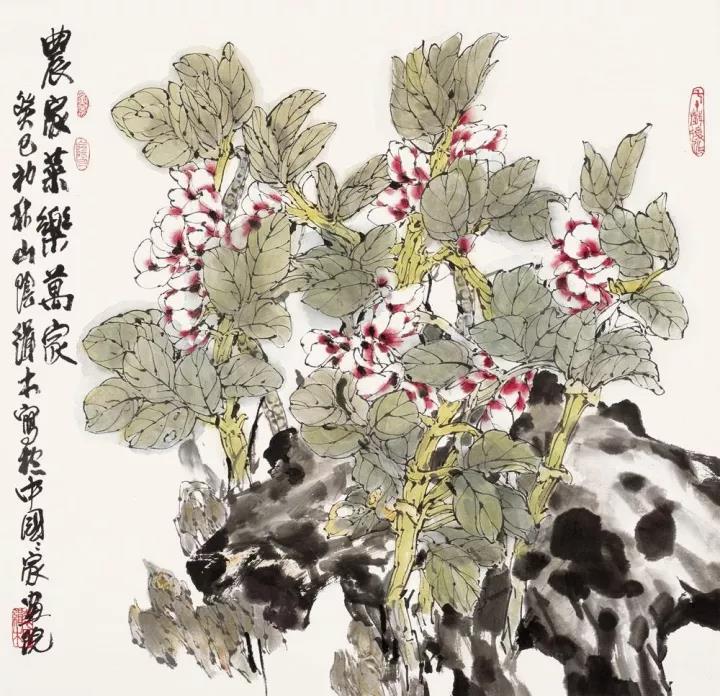 農家菜樂萬家
癸巳初秋山陰木寫於中國〻家畫院